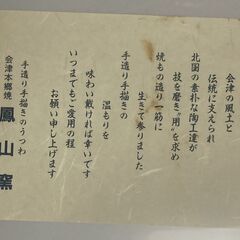 会津の風土と
伝統に支えられ
北国の素朴な陶工達が
技を磨き〝用〟を求め
焼もの造り一筋に
生きて参りました
手造り手描きの
温もりを
味わい戴ければ幸いです
いつまでもご愛用の程
お願い申し上げます
手造り手描きのうつわ
会津本郷焼
鳳山窯